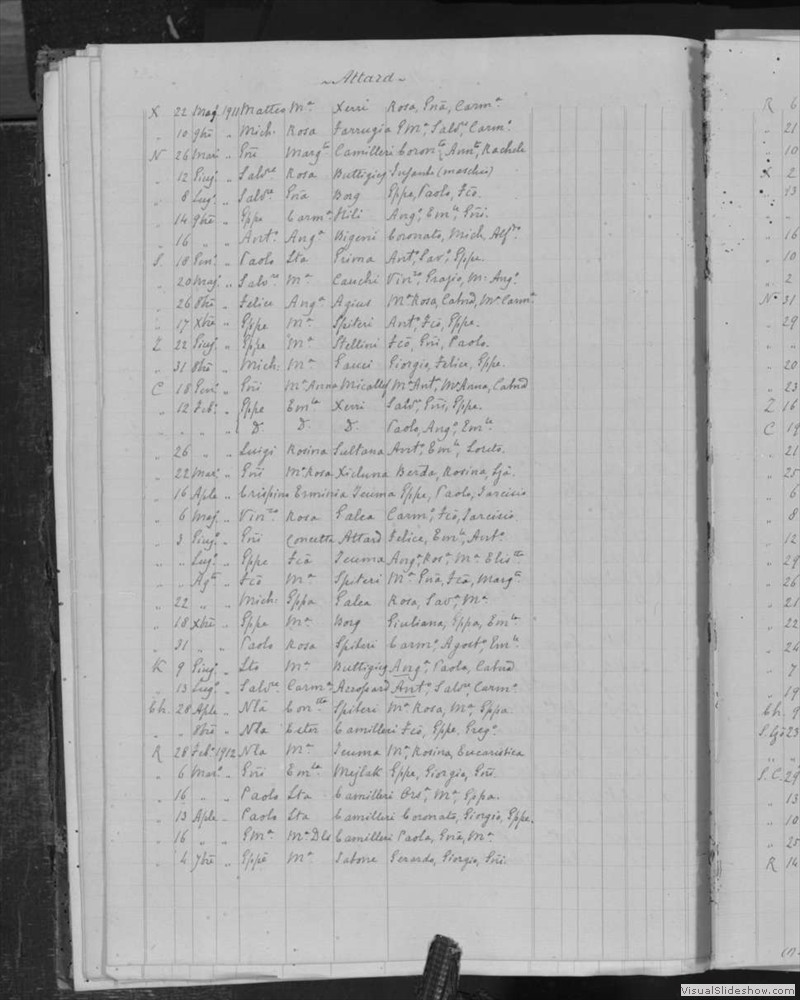 Attard
X 22 Maj. 1911 Matteo Mª Xerri Rosa, Gnã, Carmª
" 10 9bre " Mich. Rosa Farrugia G.Mª, Salvre Carmº
N 26 Mar. " Gñi Margta Camilleri Coronta, Annta, Rachele
" 12 Giug. " Salvre Rosa Buttigieg Infanti (maschi)
" 8 Lug. " Salvre Gña Borg Gppe, Paolo, Fcõ.
" 14 9bre " Gppe Carmª Mili Angº, Emle, Gñi.
" 16 " " Antº Angª Bigeni Coronato, Mich, Alfdo
S. 18 Gen. " Paolo Sta Grima Antº, Savº, Gppe.
" 20 Maj. " Salvre Mª Cauchi Vinzo, Grazio, M. Angª
" 26 8bre " Felice Angª Agius Mª Rosa, Catnd, Mª Carmª
" 17 Xbre " Gppe Mª Spiteri Antº, Fcõ, Gppe.
Z 22 Giug. " Gppe Mª Stellini Fcõ, Gñi, Paolo.
" 31 8bre " Mich. Mª Gauci Giorgio, Felice, Gppe.
C 18 Gen. " Gñi Mª Anna Micallef Mª Antª, Mª Anna, Catnd
" 12 Feb. " Gppe Emla Xerri Salvre, Gñi, Gppe.
" " " " D. D. D. Paolo, Angº, Emle.
" 26 " " Luigi Rosina Sultana Antº, Emle, Loreto.
" 22 Mar. " Gñi Mª Rosa Xicluna Berda, Rosina,
" 16 Aple " Crispino Erminia Teuma Gppe, Paolo, Tarcisio
" 6 Maj. " Vinzo Rosa Galea Carmº, Fcõ, Tarcisio
" 3 Giug. " Gñi Concetta Attard Felice, Emle, Antº
" " Lug. " Gppe Fcã Teuma Angª, Rosª, Mª Elistta
" " Agto " Fcõ Mª Spiteri Mª Gnã, Fcã, Margta
" 22 " " Mich. Gppa Galea Rosa, Savª, Mª
" 18 Xbre " Gppe Mª Borg Giuliana, Gppa, Emla
" 31 " " Paolo Rosa Spiteri Carmº, Agostº, Emle
K 9 Giug. " Sto Mª Buttigieg Angª, Paola, Catnd
" 13 Lug. " Salvre Carmª Azzopard Antº, Salvre, Carmº
Ch. 28 Aple " Nla Contta Spiteri Mª Rosa, Mª, Gppa
" " 8bre " Nla Ester Camilleri Fcõ, Gppe, Gregº
R 28 Feb. 1912 Nla Mª Teuma Mª, Rosina, Eucaristica
" 6 Mar. " Gñi Emla Mejlak Gppe, Giorgio, Gñi
" 16 " " Paolo Sta Camilleri Orsª, Mª, Gppa.
" 13 Aple " Paolo Sta Camilleri Coronato, Giorgio, Gppe.
" 16 " " GMª Mª Dls Camilleri Paola, Gnã, Mª
" 4 7bre " Gppe Mª Saboue Gerardo, Giorgio, Gñi.
R 6
" 21
" 10
X 2
" 13
" "
" 16
" 10
" 2
N 31
" 29
" "
" 20
" 23
Z 16
C 19
" 21
" 25
" 6
" 8
" 12
" 29
" 26
" 21
" 22
" 24
" 7
" 19
Ch. 9
23
" "
S.C. 29
" 13
" 10
" 25
R 14
VisualSlideshow.com